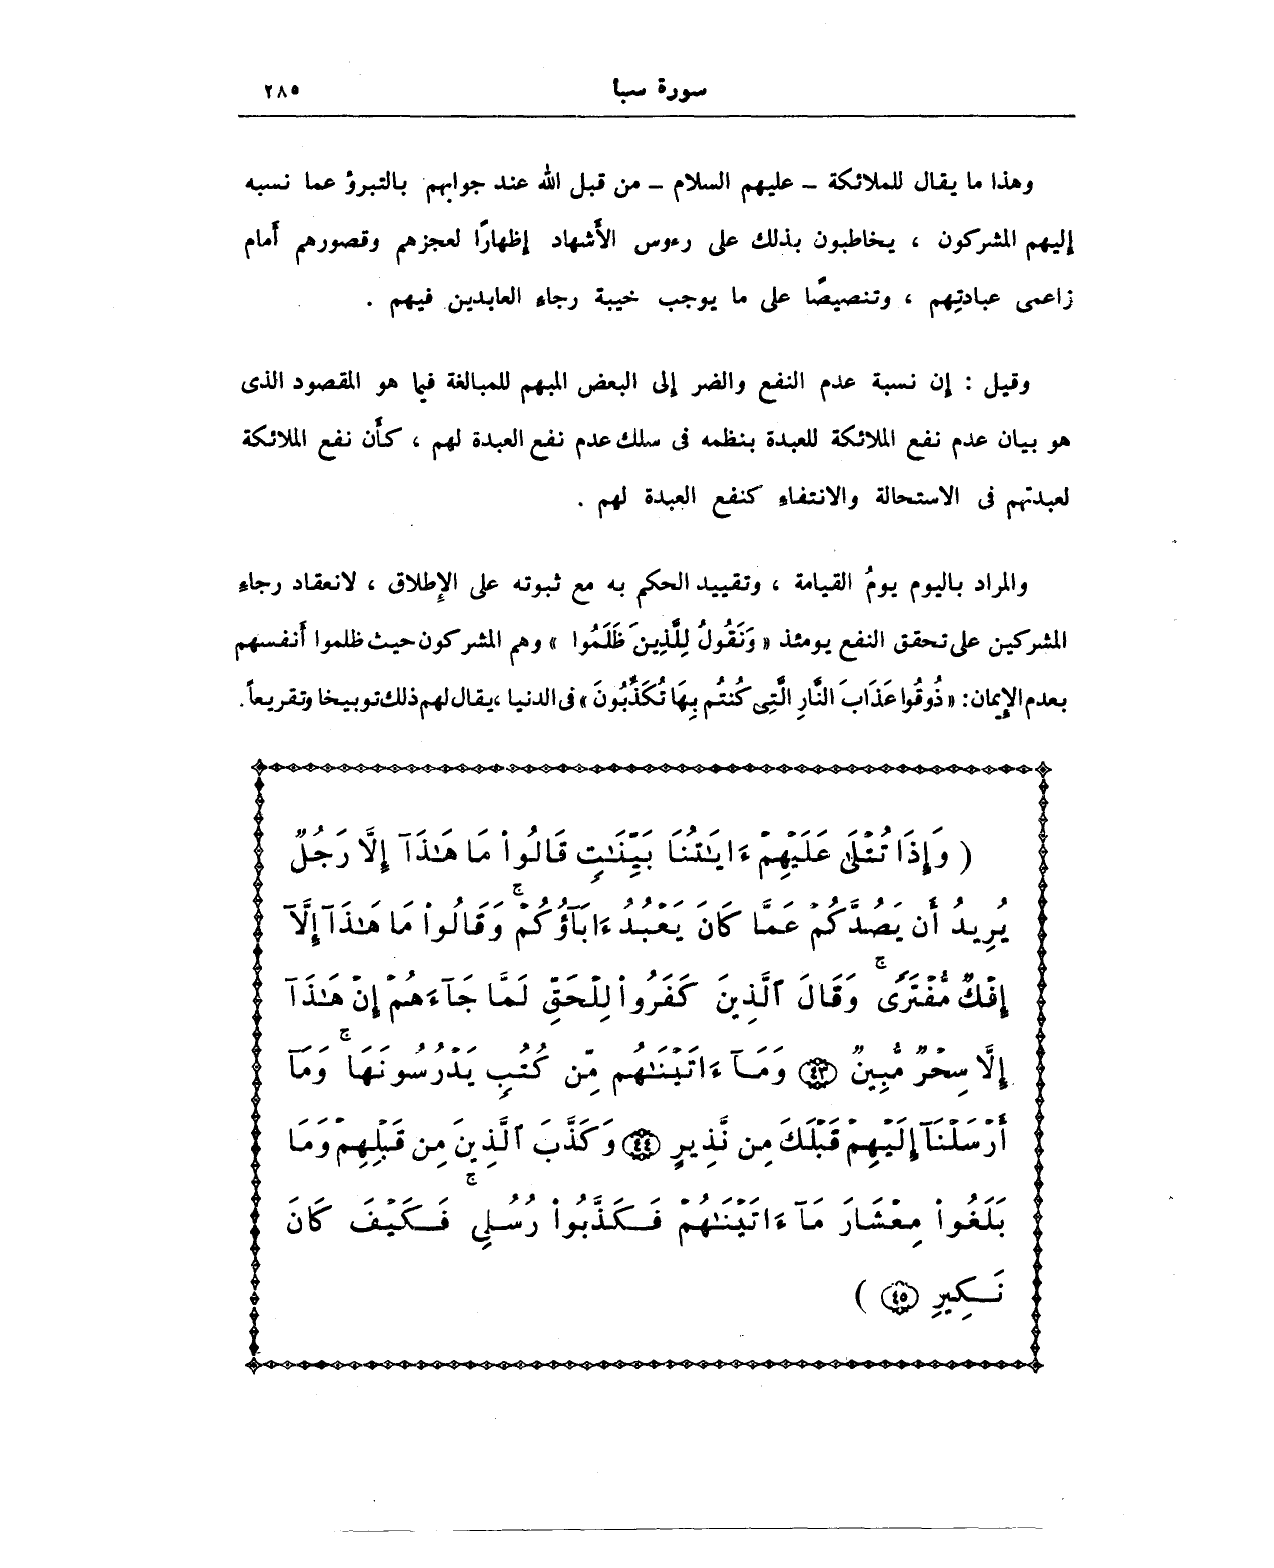 سورة سبا ٢٨٥
وهذا ما يقال للملائكة – عليهم السلام – من قبل الله عند جوابهم بالتبرؤ عما نسبه
إليهم المشركون ، يخاطبون بذلك على رءوس الأشهاد إظهارًا لعجزهم وقصورهم أمام
زاعمى عبادتِهم ، وتنصيصًا على ما يوجب خيبة رجاء العابدين فيهم .
وقيل : إن نسبة عدم النفع والضر إلى البعض المبهم للمبالغة فيما هو المقصود الذى
هو بيان عدم نفع الملائكة للعبدة بنظمه فى سلك عدم نفع العبدة لهم ، كأن نفع الملائكة
لعبدتهم فى الاستحالة والانتفاء كنفع العبدة لهم .
والمراد باليوم يومُ القيامة ، وتقييد الحكم به مع ثبوته على الإطلاق ، لانعقاد رجاء
المشركين على تحقق النفع يومئذ « وَنَقُولُ لِلَّذِينَ ظَلَمُوا » وهم المشركون حيث ظلموا أنفسهم
بعدم الإيمان: « ذُوقُوا عَذَابَ النَّارِ الَّتِى كُنتُم بِهَا تُكَذِّبُونَ » فى الدنيا ، يقال لهم ذلك توبيخا وتقريعاً.
( وَإِذَا تُتْلَىٰ عَلَيْهِمْ ءَايَـٰتُنَا بَيِّنَـٰتٍ قَالُوا۟ مَا هَـٰذَآ إِلَّا رَجُلٌ
يُرِيدُ أَن يَصُدَّكُمْ عَمَّا كَانَ يَعْبُدُ ءَابَآؤُكُمْ ۚ وَقَالُوا۟ مَا هَـٰذَآ إِلَّآ
إِفْكٌ مُّفْتَرًى ۚ وَقَالَ ٱلَّذِينَ كَفَرُوا۟ لِلْحَقِّ لَمَّا جَآءَهُمْ إِنْ هَـٰذَآ
إِلَّا سِحْرٌ مُّبِينٌ ٤٣ وَمَآ ءَاتَيْنَـٰهُم مِّن كُتُبٍ يَدْرُسُونَهَا ۚ وَمَآ
أَرْسَلْنَآ إِلَيْهِمْ قَبْلَكَ مِن نَّذِيرٍ ٤٤ وَكَذَّبَ ٱلَّذِينَ مِن قَبْلِهِمْ وَمَا
بَلَغُوا۟ مِعْشَارَ مَآ ءَاتَيْنَـٰهُمْ فَكَذَّبُوا۟ رُسُلِى ۚ فَكَيْفَ كَانَ
نَكِيرِ ٤٥ )